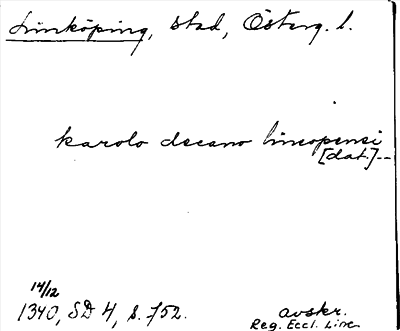 Linköping, stad, Österg. l.
karolo decano lincopensi
[dat.]--
14/12
1340, SD 4, s. 752.
avskr.
Reg. Eccl. Linc